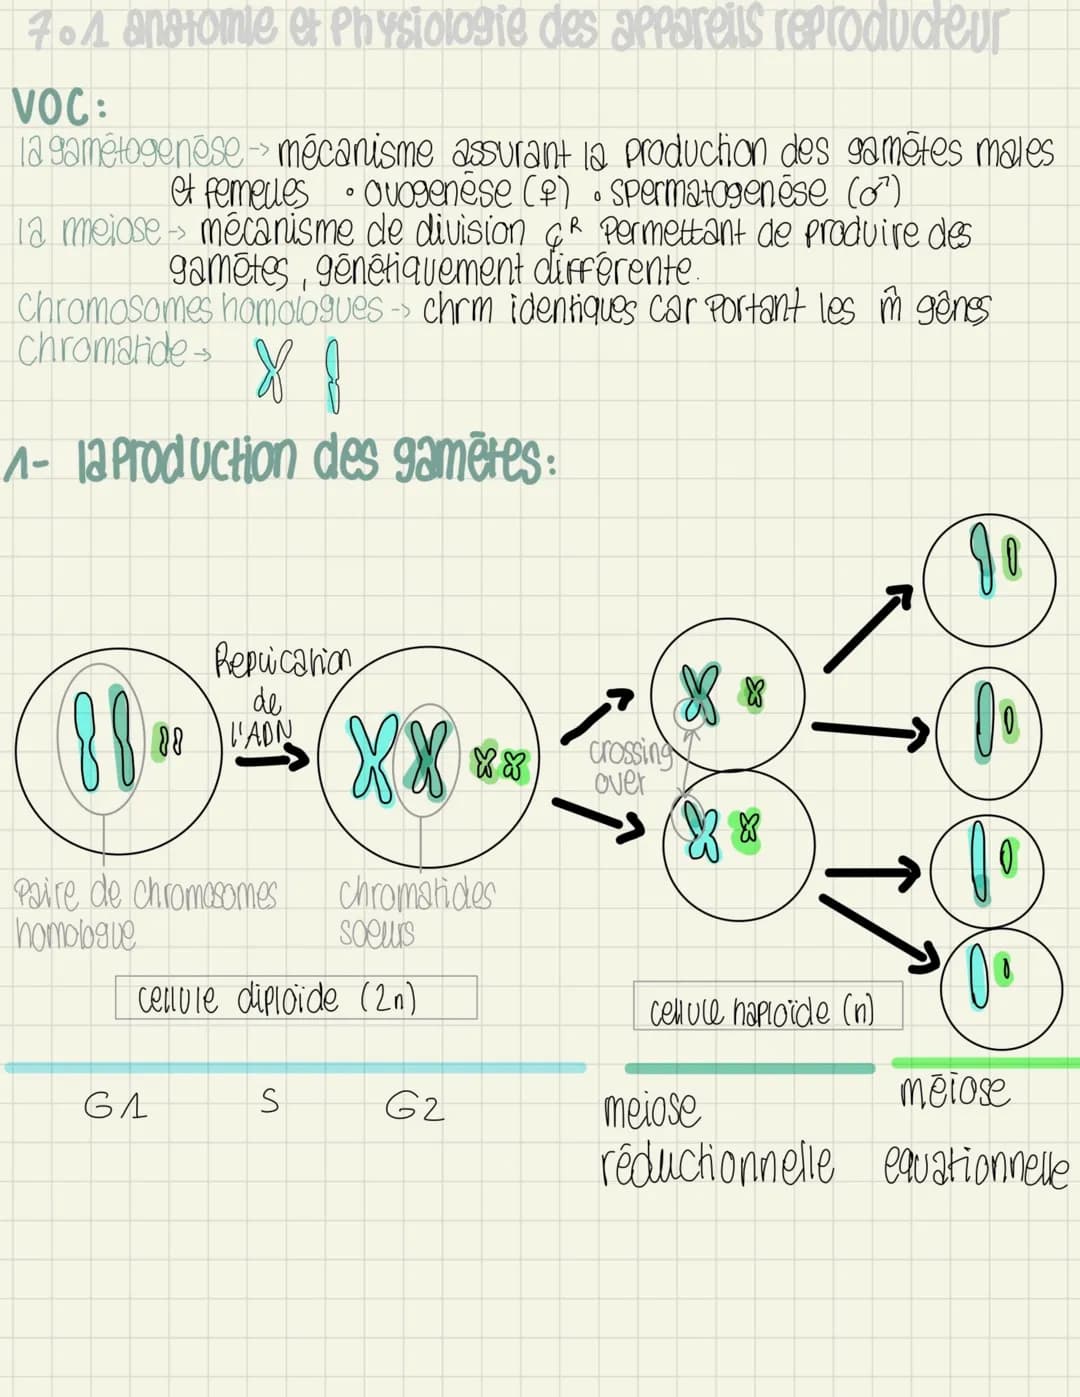 7.1 anatomie et Physiologie des appareils reproducteur
VOC:
la gamétogenèse -> mécanisme assurant la production des gamètes males
et femelles • ovogenèse (♀) • spermatogenèse (♂)
la meiose -> mécanisme de division çR Permettant de produire des
gamètes, génétiquement différente.
Chromosomes homologues -> chrm identiques car Portant les m̂ gènes
Chromatide ->
1- la Production des gamètes:
Replication
de
l'ADN
crossing
over
Paire de Chromosomes
homologue
Chromatides
soeurs
cellule diploïde (2n)
cellule haploïde (n)
G1 S G2
meiose
réductionnelle
méiose
equationnelle